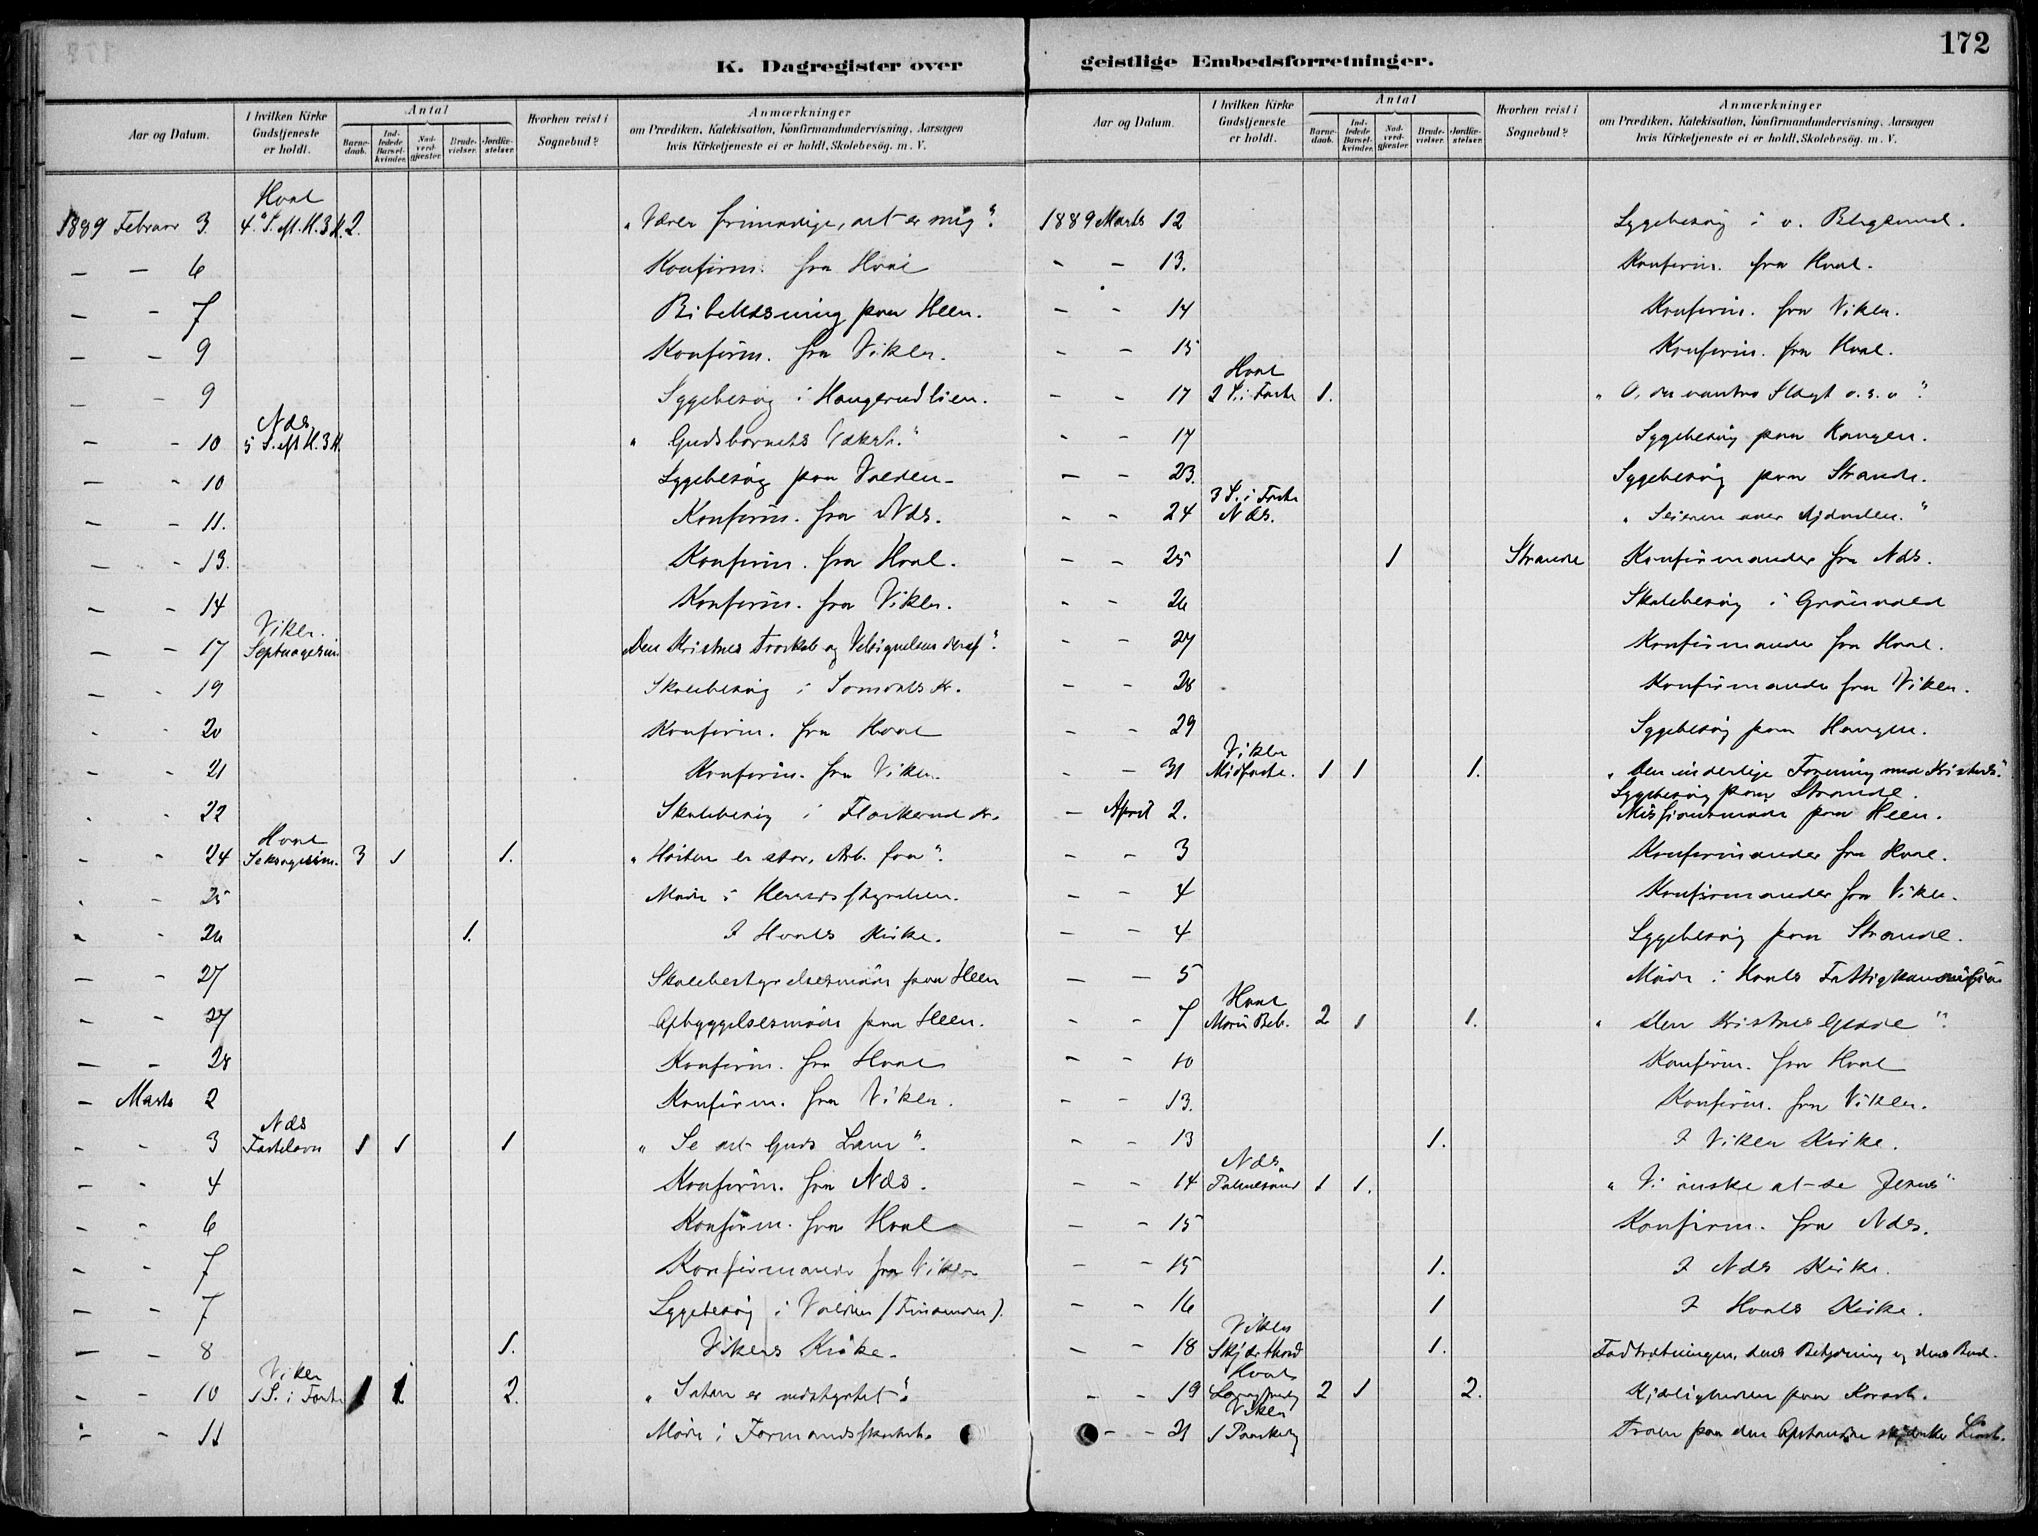 172
K. Dagregister over geistlige Embedsforretninger.
Aar og Datum.
I hvilken Kirke Gudstjeneste er holdt.
Antal
Barnedaab.
Indledede Barselkvinder.
Nadverdgjæster.
Brudevielser.
Jordfæstelser.
Hvorhen reist i Sognebud?
Anmærkninger
om Prædiken, Katekisation, Konfirmandundervisning, Aarsagen
hvis Kirketjeneste ei er holdt, Skolebesøg. m. V.
Hval
1889 Februar 3. 4. S. eft. H. 3 K. 2. "Værer frimodige, det er mig".
— — 6 Konfirm. fra Hval
— - 7 Bibellæsning paa Heen.
— — 9 Konfirm. fra Viker.
— - 9 Sygebesøg i Haugerudlien.
Næs
- - 10 5 S. eft H. 3 K. "Gudsbarnets Vækst."
— - 10 Sygebesøg paa Valdien.
— - 11. Konfirm. fra Næs.
— - 13. Konfirm. fra Hval.
— - 14 Konfirm. fra Viker.
Viker.
— - 17 Septuagesim. Den Kristnes Troskab og Velsignelsen deraf".
- - 19 Skolebesøg i Somdals Kr.
- - 20 Konfirm. fra Hval
- - 21 Konfirm. fra Viker.
- - 22 Skolebesøg i Flaskerud Kr.
Hval
- - 24 Seksagesim. 3 1 1. "Høsten er stor, Arb. faa".
- - 25 Møde i Herredsstyrelsen.
- - 26 1. I Hvals Kirke.
— - 27 Skolebestyrelsesmøde paa Heen
- - 27 Opbyggelsesmøde paa Heen.
— — 28 Konfirm. fra Hval
— Marts 2 Konfirm. fra Viker.
Næs
- - 3 Fastelavn 1 1 1 "Se det Guds Lam".
- - 4 Konfirm. fra Næs.
- - 6 Konfirm. fra Hval
- - 7 Konfirmander fra Viker
— - 7 Sygebesøg i Valdien
— — 8 1. Vikers Kirke.
Viker
- - 10 1 S. i Faste 1 1 2. "Satan er nedstyrtet".
- - 11 Møde i Formandsskabet.
Aar og Datum.
I hvilken Kirke Gudstjeneste er holdt.
Antal
Barnedaab.
Indledede Barselkvinder.
Nadverdgjæster.
Brudevielser.
Jordfæstelser.
Hvorhen reist i Sognebud?
Anmærkninger
om Prædiken, Katekisation, Konfirmandundervisning, Aarsagen
hvis Kirketjeneste ei er holdt, Skolebesøg. m. V.
1889 Marts 12 Sygebesøg i v. Bergsund.
- - 13. Konfirm. fra Hval.
- - 14 Konfirm. fra Viker.
- - 15 Konfirm. fra Hval.
Hval
- - 17 2 S. i Faste 1. "O, du vantro Slægt o. s. v".
- - 17 Sygebesøg paa Haugen.
— - 23. Sygebesøg paa Strande.
3 S. i Faste
- - 24 Næs. "Seieren over Djævelen."
- - 25 1 Strande Konfirmander fra Næs.
- - 26 Skolebesøg i
- - 27 Konfirmander fra Hval.
— - 28 Konfirmander fra Viker.
- - 29 Sygebesøg paa Haugen.
Viker
- - 31 Midfaste. 1 1 1. "Den inderlige Forening med Kristus".
Sygebesøg paa Strande.
— April 2. Missionsmøde paa Heen.
- - 3 Konfirmander fra Hval.
— - 4 Konfirmander fra Viker.
— - 4 Sygebesøg paa Strande.
— — 5 Møde i Hvals Fattigkommission
Hval
- - 7 Mariæ Beb. 2 1 1. "Den Kristnes Glæde".
- - 10 Konfirm. fra Hval
- - 13. Konfirm. fra Viker.
- - 13 1. I Viker Kirke.
Næs
- - 14 Palmesønd 1 1. "Vi ønske at se Jesus"
— - 15 Konfirm. fra Næs.
— - 15 1. I Næs Kirke.
— - 16 1 I Hvals Kirke.
Viker
— - 18 Skjærthorsd 1. Fodtvætningen, dens Betydning og dens Bud.
Hval
- - 19 Langfredag 2 1 2. Kjærligheden paa Korset.
Viker
- - 21 1 Paaskedag Troen paa den Opstandne Livet.